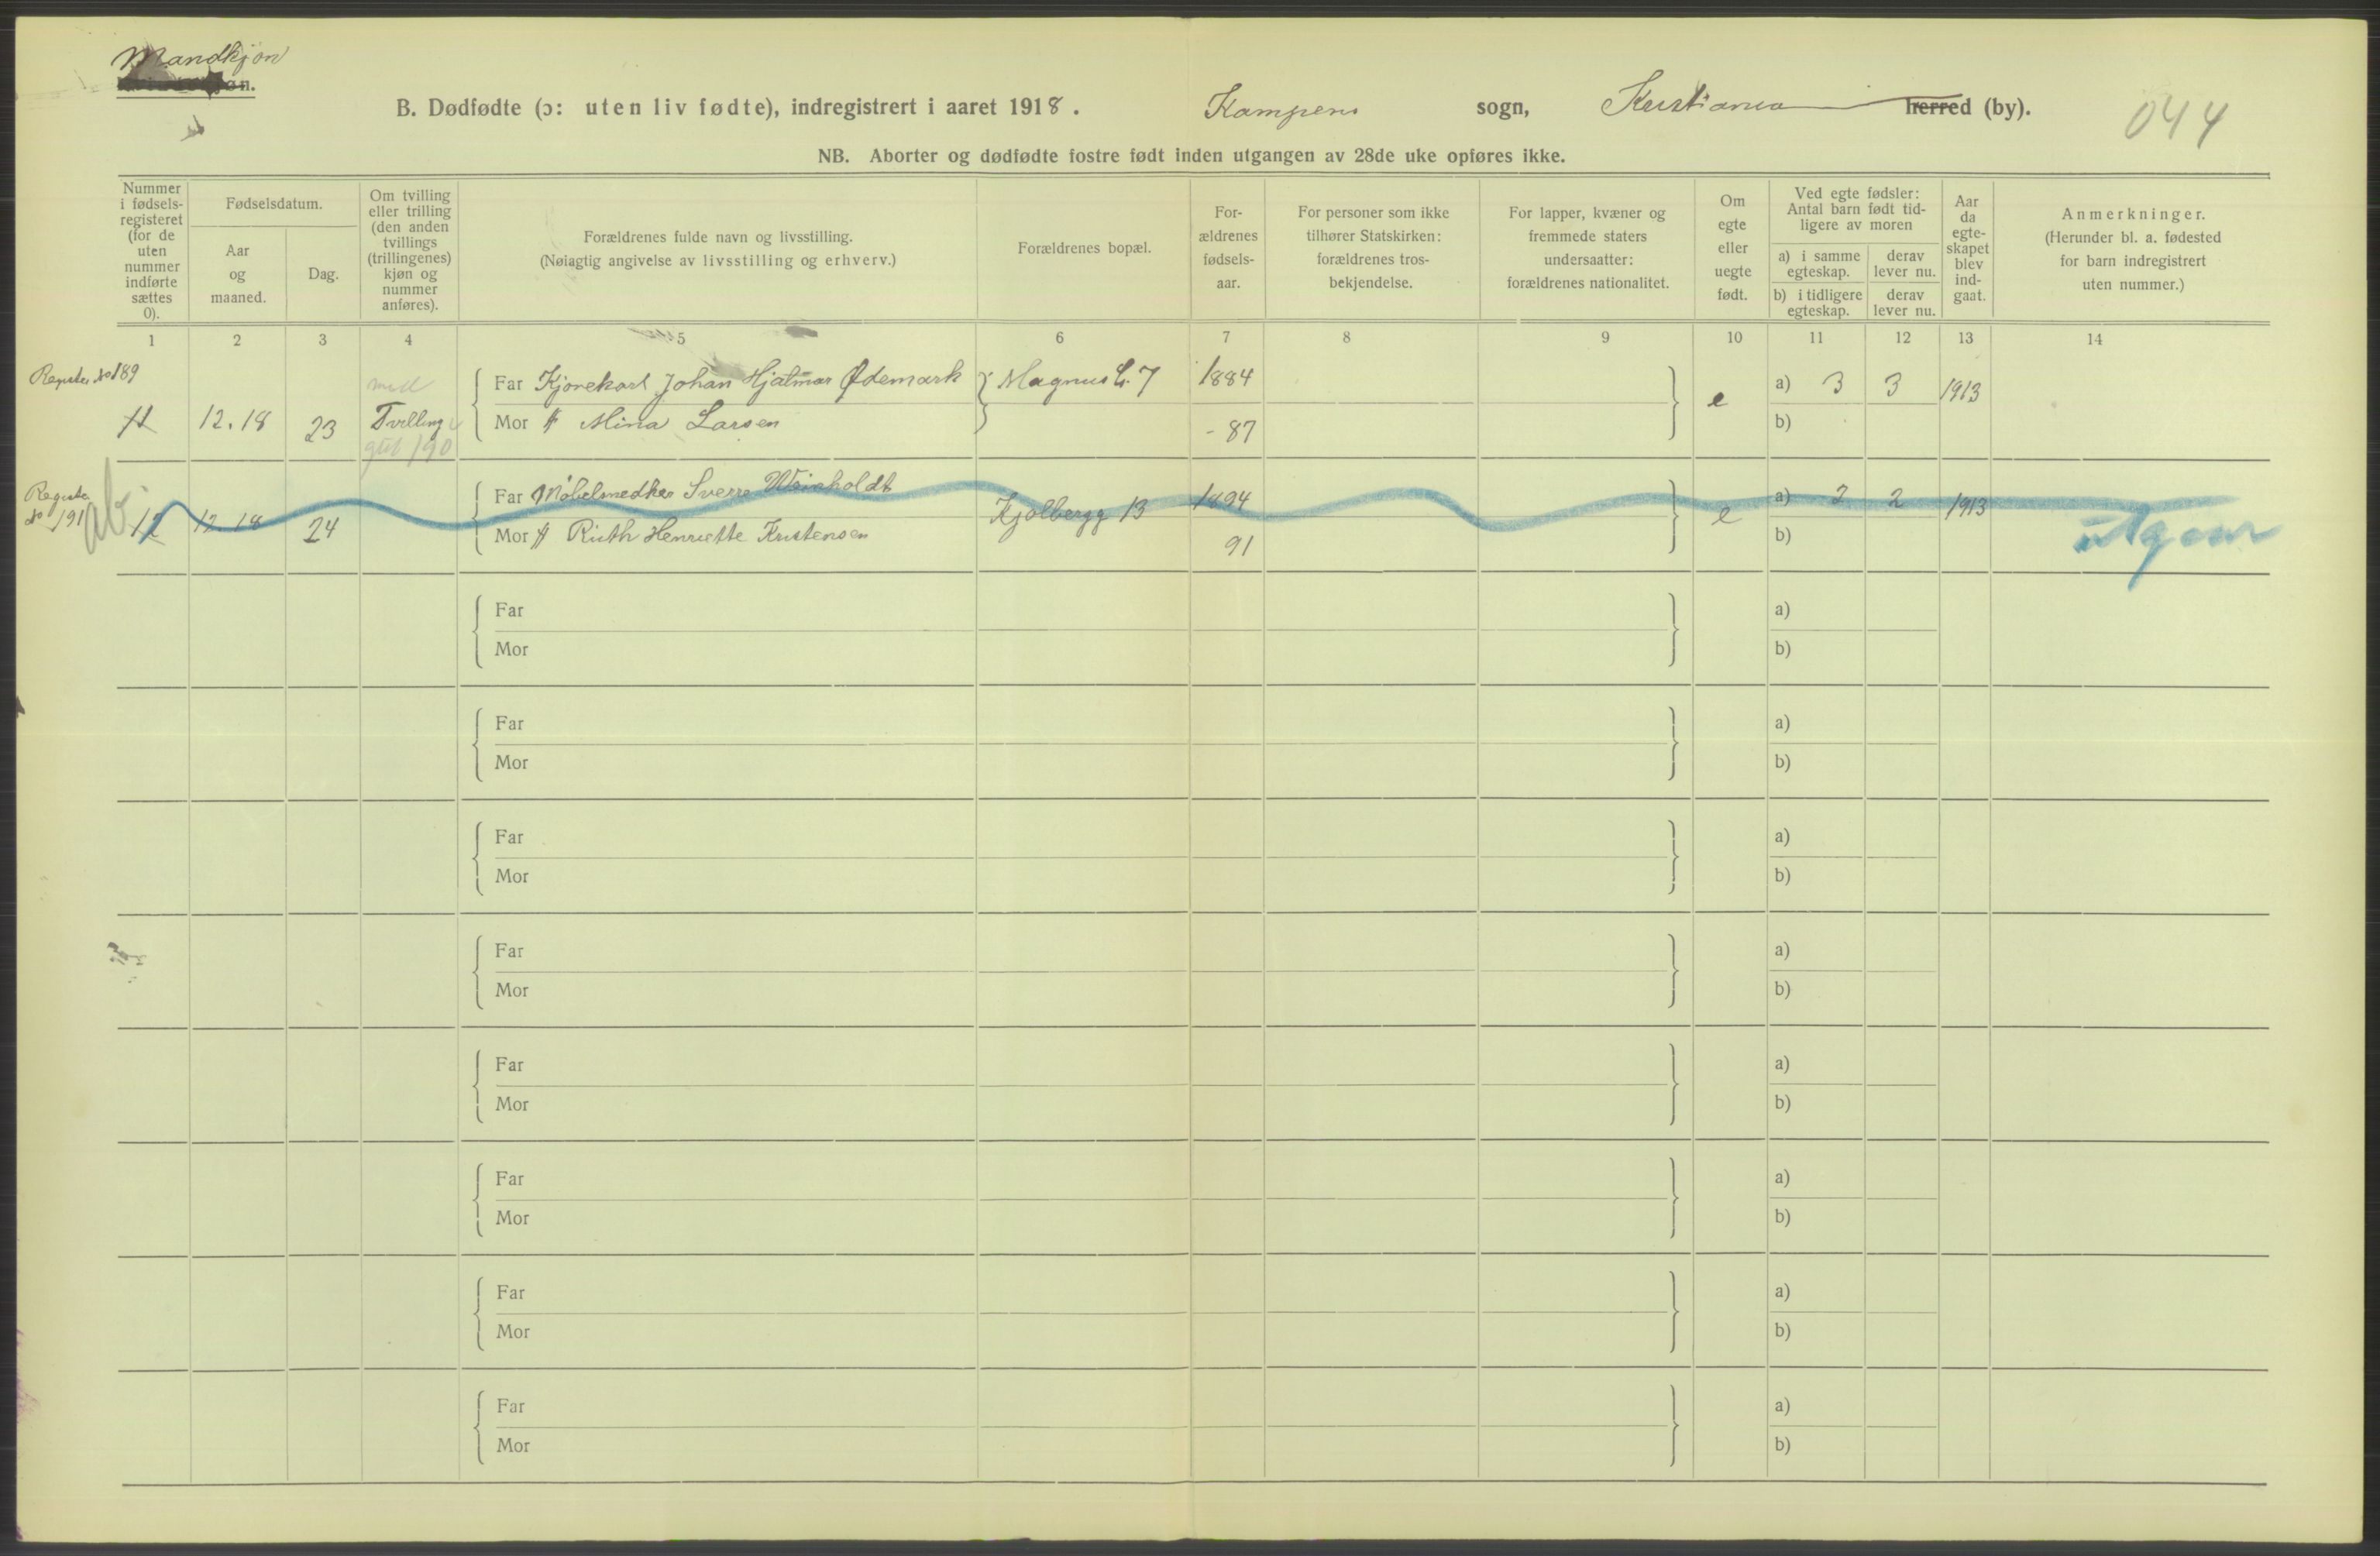 Mandkjøn
B. Dødfødte (ɔ: uten liv fødte), indregistrert i aaret 1918. Kampens sogn, Kristiania herred (by). 044
NB. Aborter og dødfødte fostre født inden utgangen av 28de uke opføres ikke.
Nummer i fødsels-registeret (for de uten nummer indførte sættes 0).
Fødselsdatum.
Aar og maaned.
Dag.
Om tvilling eller trilling (den anden tvillings (trillingenes) kjøn og nummer anføres).
Forældrenes fulde navn og livsstilling.
(Nøiagtig angivelse av livsstilling og erhverv.)
Forældrenes bopæl.
For-ældrenes fødsels-aar.
For personer som ikke tilhører Statskirken: forældrenes tros-bekjendelse.
For lapper, kvæner og fremmede staters undersaatter: forældrenes nationalitet.
Om egte eller uegte født.
Ved egte fødsler: Antal barn født tid-ligere av moren
a) i samme egteskap.
derav lever nu.
b) i tidligere egteskap.
derav lever nu.
Aar da egte-skapet blev ind-gaat.
Anmerkninger.
(Herunder bl. a. fødested for barn indregistrert uten nummer.)
1 2 3 4 5 6 7 8 9 10 11 12 13 14
Register No 189
med
Far Kjørekarl Johan Hjalmar Ødemark Magnus G. 7 1884 a) 3 3 1913
11 12.18 23 Tvilling Mor H Mina Larsen - 87 e b)
gut 190
Register No 191
ab
Far Møbelsnedker Sverre Weinholdt Kjølbergg 13 1894 a) 2 2 1913
12 12.18 24 Mor H Ruth Henriette Kristensen 91 e b)
utgaar
Far a)
Mor b)
Far a)
Mor b)
Far a)
Mor b)
Far a)
Mor b)
Far a)
Mor b)
Far a)
Mor b)
Far a)
Mor b)
Far a)
Mor b)